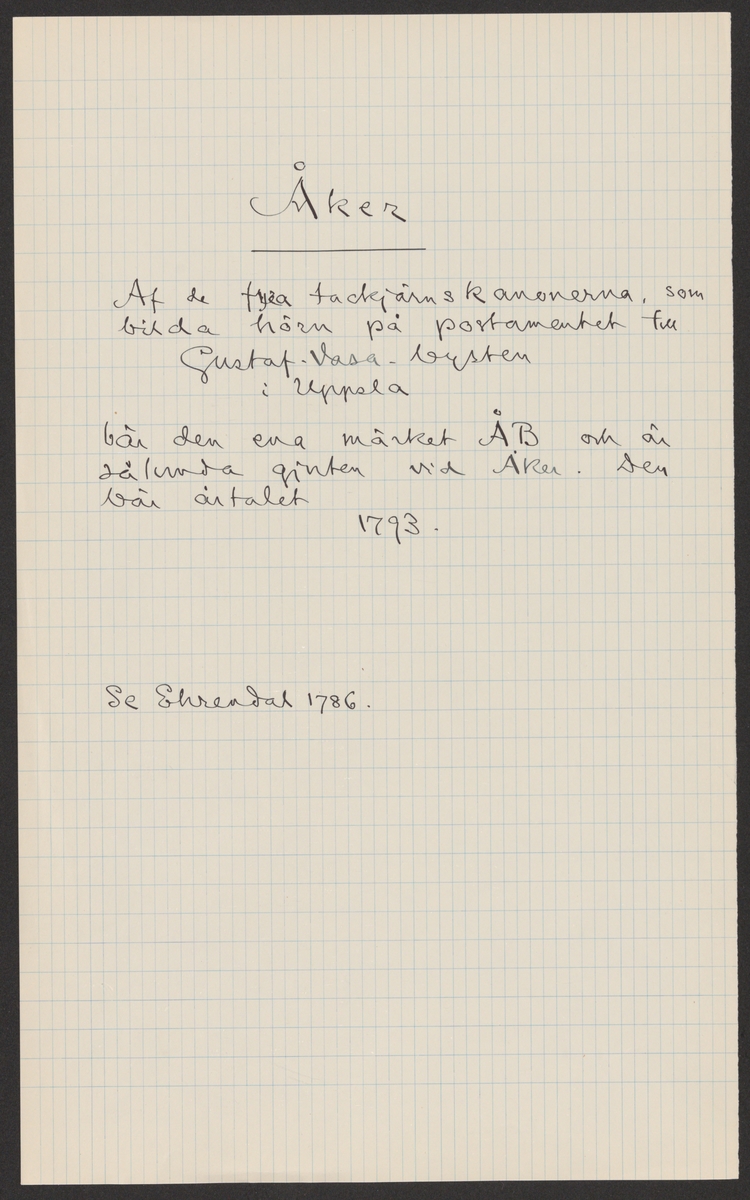 Åker
Af de fyra tackjärnskanonerna, som
bilda hörn på postamentet till
Gustaf-Vasa-bysten
i Uppsala
bär den ena märket ÅB och är
sålunda gjuten vid Åker. Den
bär årtalet
1793.
Se Ehrendal 1786.